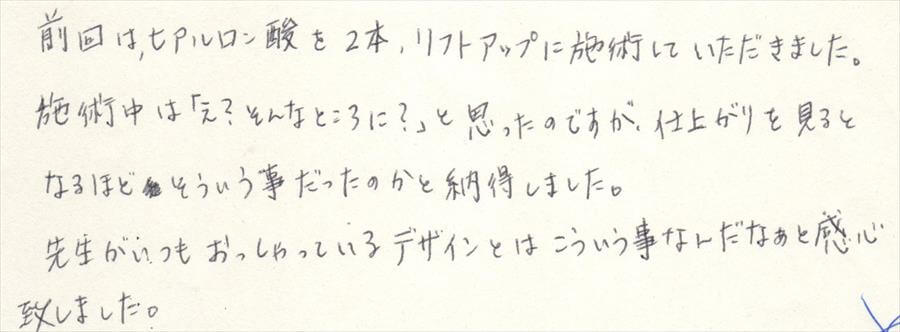 前回は,ヒアルロン酸を2本,リフトアップに施術していただきました。
施術中は「え?そんなところに?」と思ったのですが,仕上がりを見ると
なるほどそういう事だったのかと納得しました。
先生がいつもおっしゃっているデザインとはこういう事なんだなぁと感心
致しました。